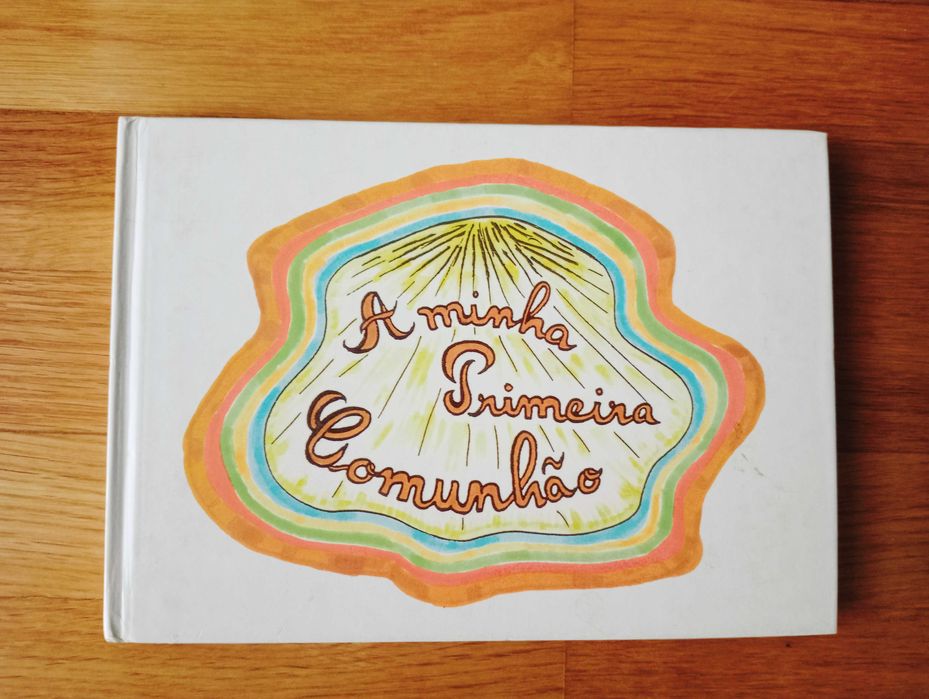 A minha
Primeira
Comunhão